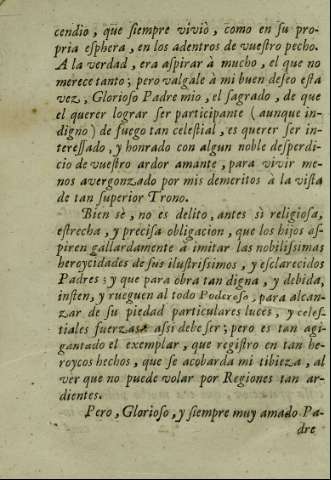 cendio, que siempre vivió, como en su pro-
pria esphera, en los adentros de vuestro pecho.
A la verdad, era aspirar à mucho, el que no
merece tanto; pero valgale à mi buen deseo esta
vez, Glorioso Padre mio, el sagrado, de que
el querer lograr ser participante (aunque in-
digno) de fuego tan celestial, es querer ser in-
teressado, y honrado con algun noble desperdi-
cio de vuestro ardor amante, para vivir me-
nos avergonzado por mis demeritos à la vista
de tan superior Trono.
Bien sè, no es delito, antes sì religiosa,
estrecha, y precisa obligacion, que los hijos as-
piren gallardamente à imitar las nobilissimas
heroycidades de sus ilustrissimos, y esclarecidos
Padres: y que para obra tan digna, y debida,
insten, y rueguen al todo Poderoso, para alcan-
zar de su piedad particulares luces, y celes-
tiales fuerzas: assi debe ser; pero es tan agi-
gantado el exemplar, que registro en tan he-
roycos hechos, que se acobarda mi tibieza, al
ver que no puede volar por Regiones tan ar-
dientes.
Pero, Glorioso, y siempre muy amado Pa-
dre